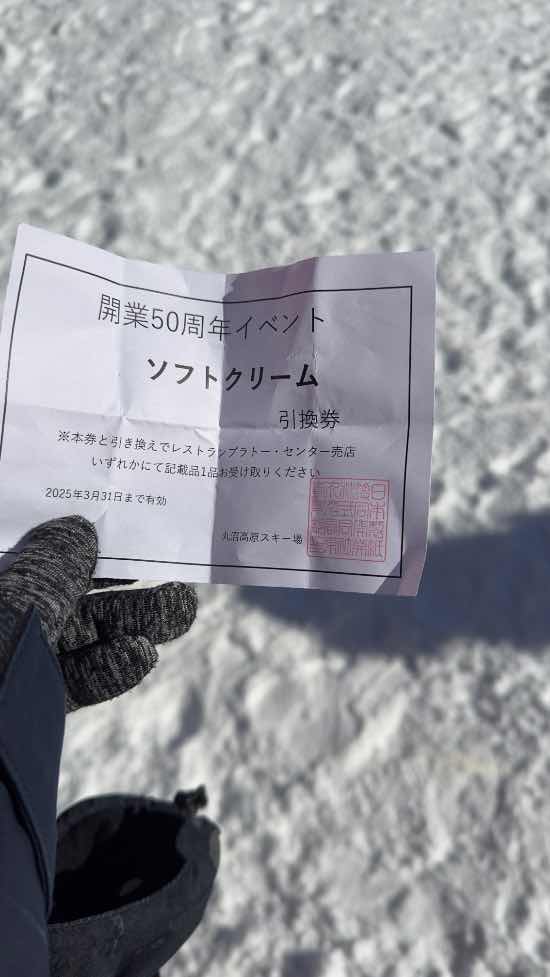 開業50周年イベント
ソフトクリーム
引換券
※本券と引き換えでレストランプラトー・センター売店
いずれかにて記載品1品お受け取りください
2025年3月31日まで有効
丸沼高原スキー場